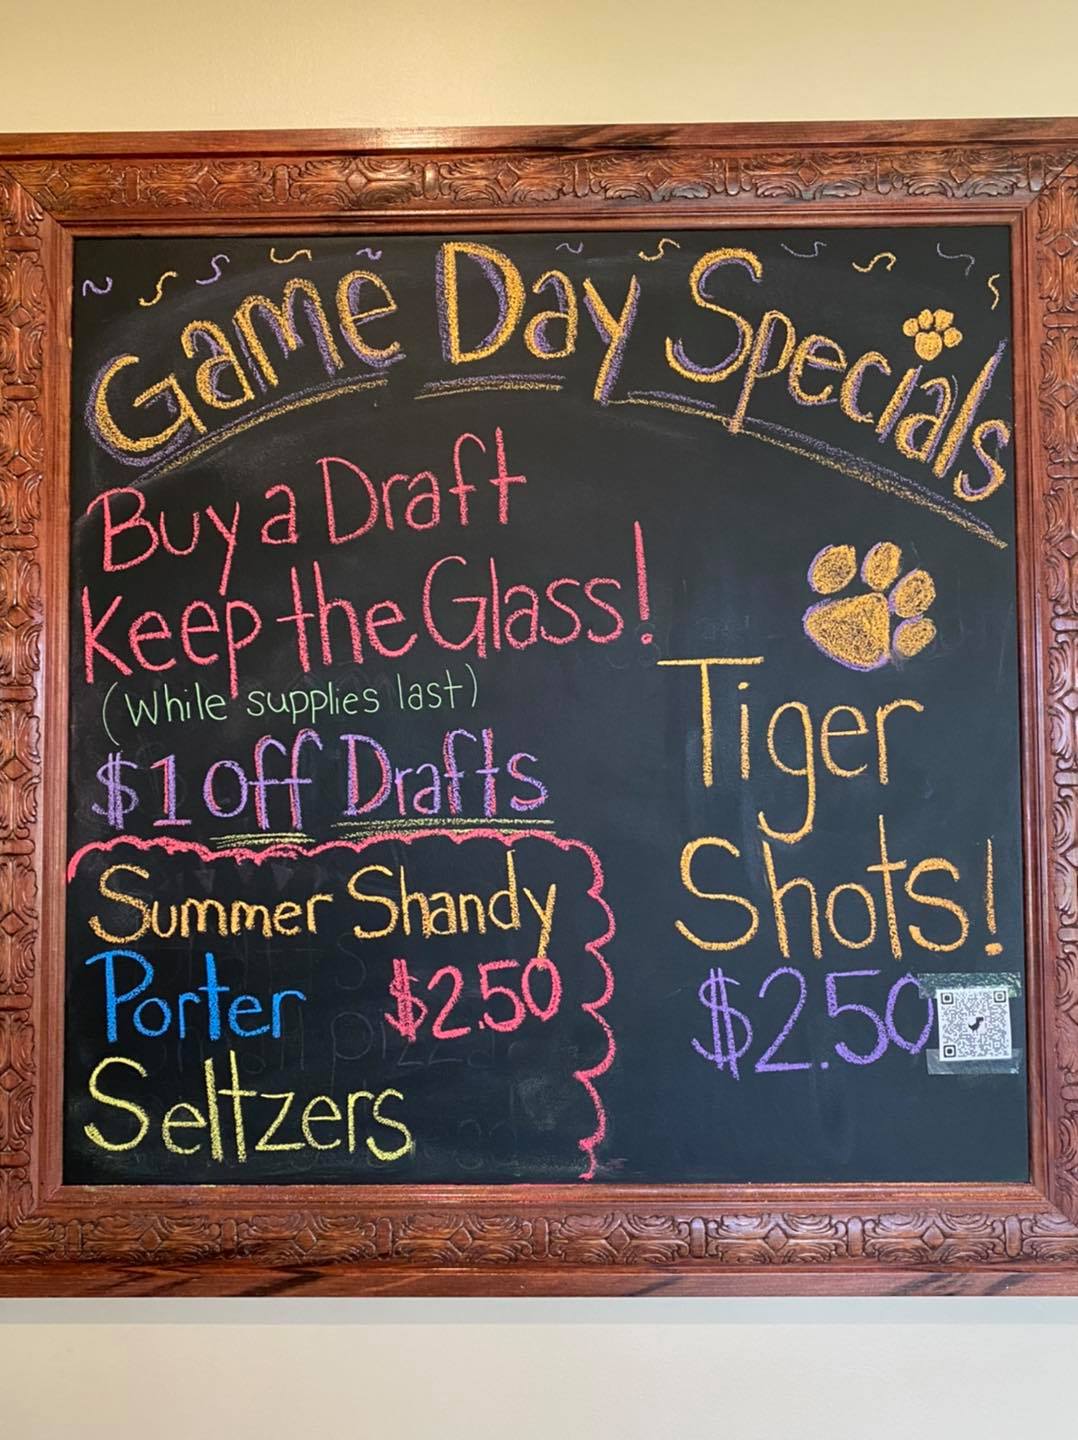 Game Day Specials
Buy a Draft
Keep the Glass!
(While supplies last)
$1 off Drafts
Summer Shandy
Porter $2.50
Seltzers
Tiger
Shots!
$2.50